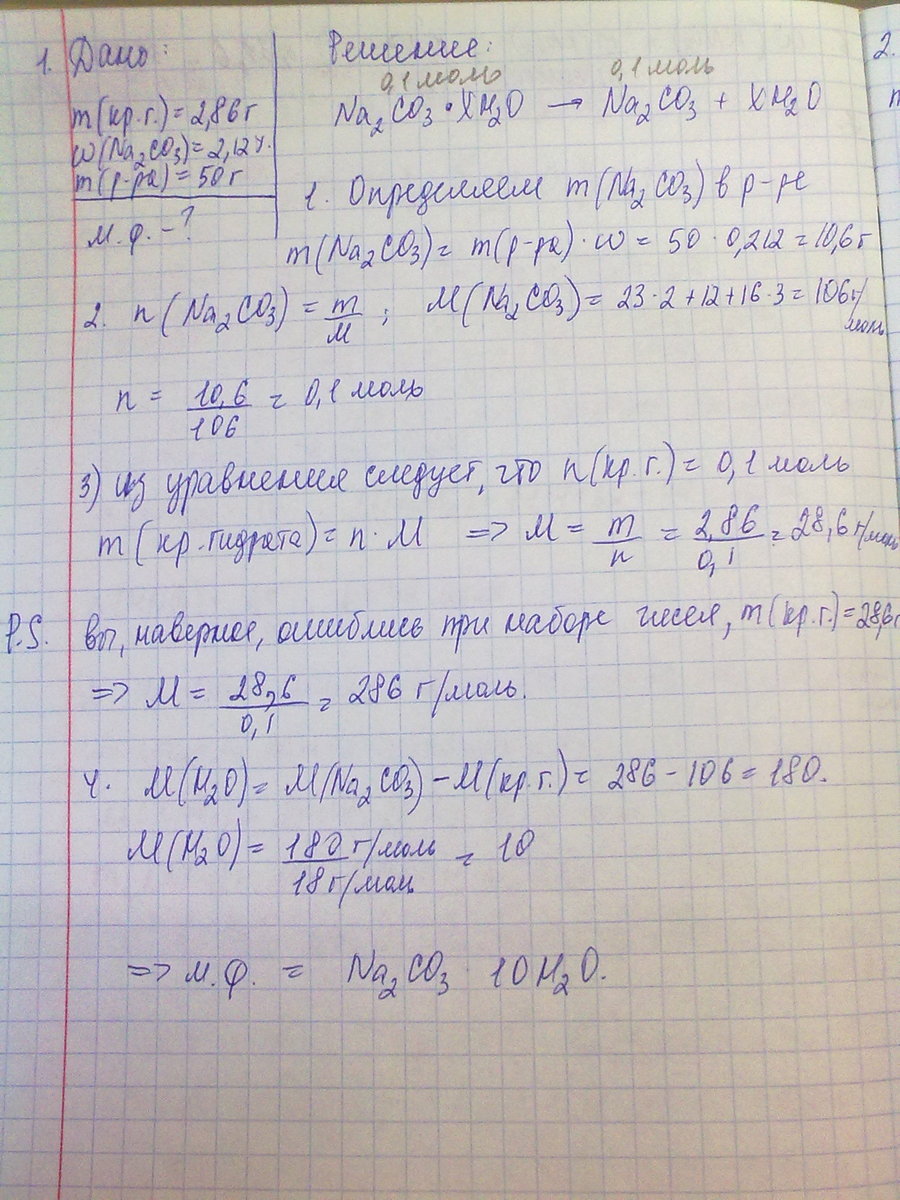 1. Дано:
Решение:
2.
0,1 моль
0,1 моль
Na₂CO₃ • XH₂O → Na₂CO₃ + XH₂O
m(кр.г.) = 2,86 г
ω(Na₂CO₃) = 2,12%.
m(р-ра) = 50 г
м.ф. - ?
1. Определяем m(Na₂CO₃) в р-ре
m(Na₂CO₃) = m(р-ра) · ω = 50 · 0,212 = 10,6 г
2. n(Na₂CO₃) = m/M ; M(Na₂CO₃) = 23·2+12+16·3 = 106 г/моль
n = 10,6/106 = 0,1 моль
3) из уравнения следует, что n(кр.г.) = 0,1 моль
m(кр.гидрата) = n · M => M = m/n = 2,86/0,1 = 28,6 г/моль
P.S. вы, наверное, ошиблись при наборе чисел, m(кр.г.) = 28,6г
=> M = 28,6/0,1 = 286 г/моль.
4. M(H₂O) = M(Na₂CO₃) - M(кр.г.) = 286 - 106 = 180.
M(H₂O) = 180 г/моль / 18 г/моль = 10
=> м.ф. = Na₂CO₃ 10H₂O.